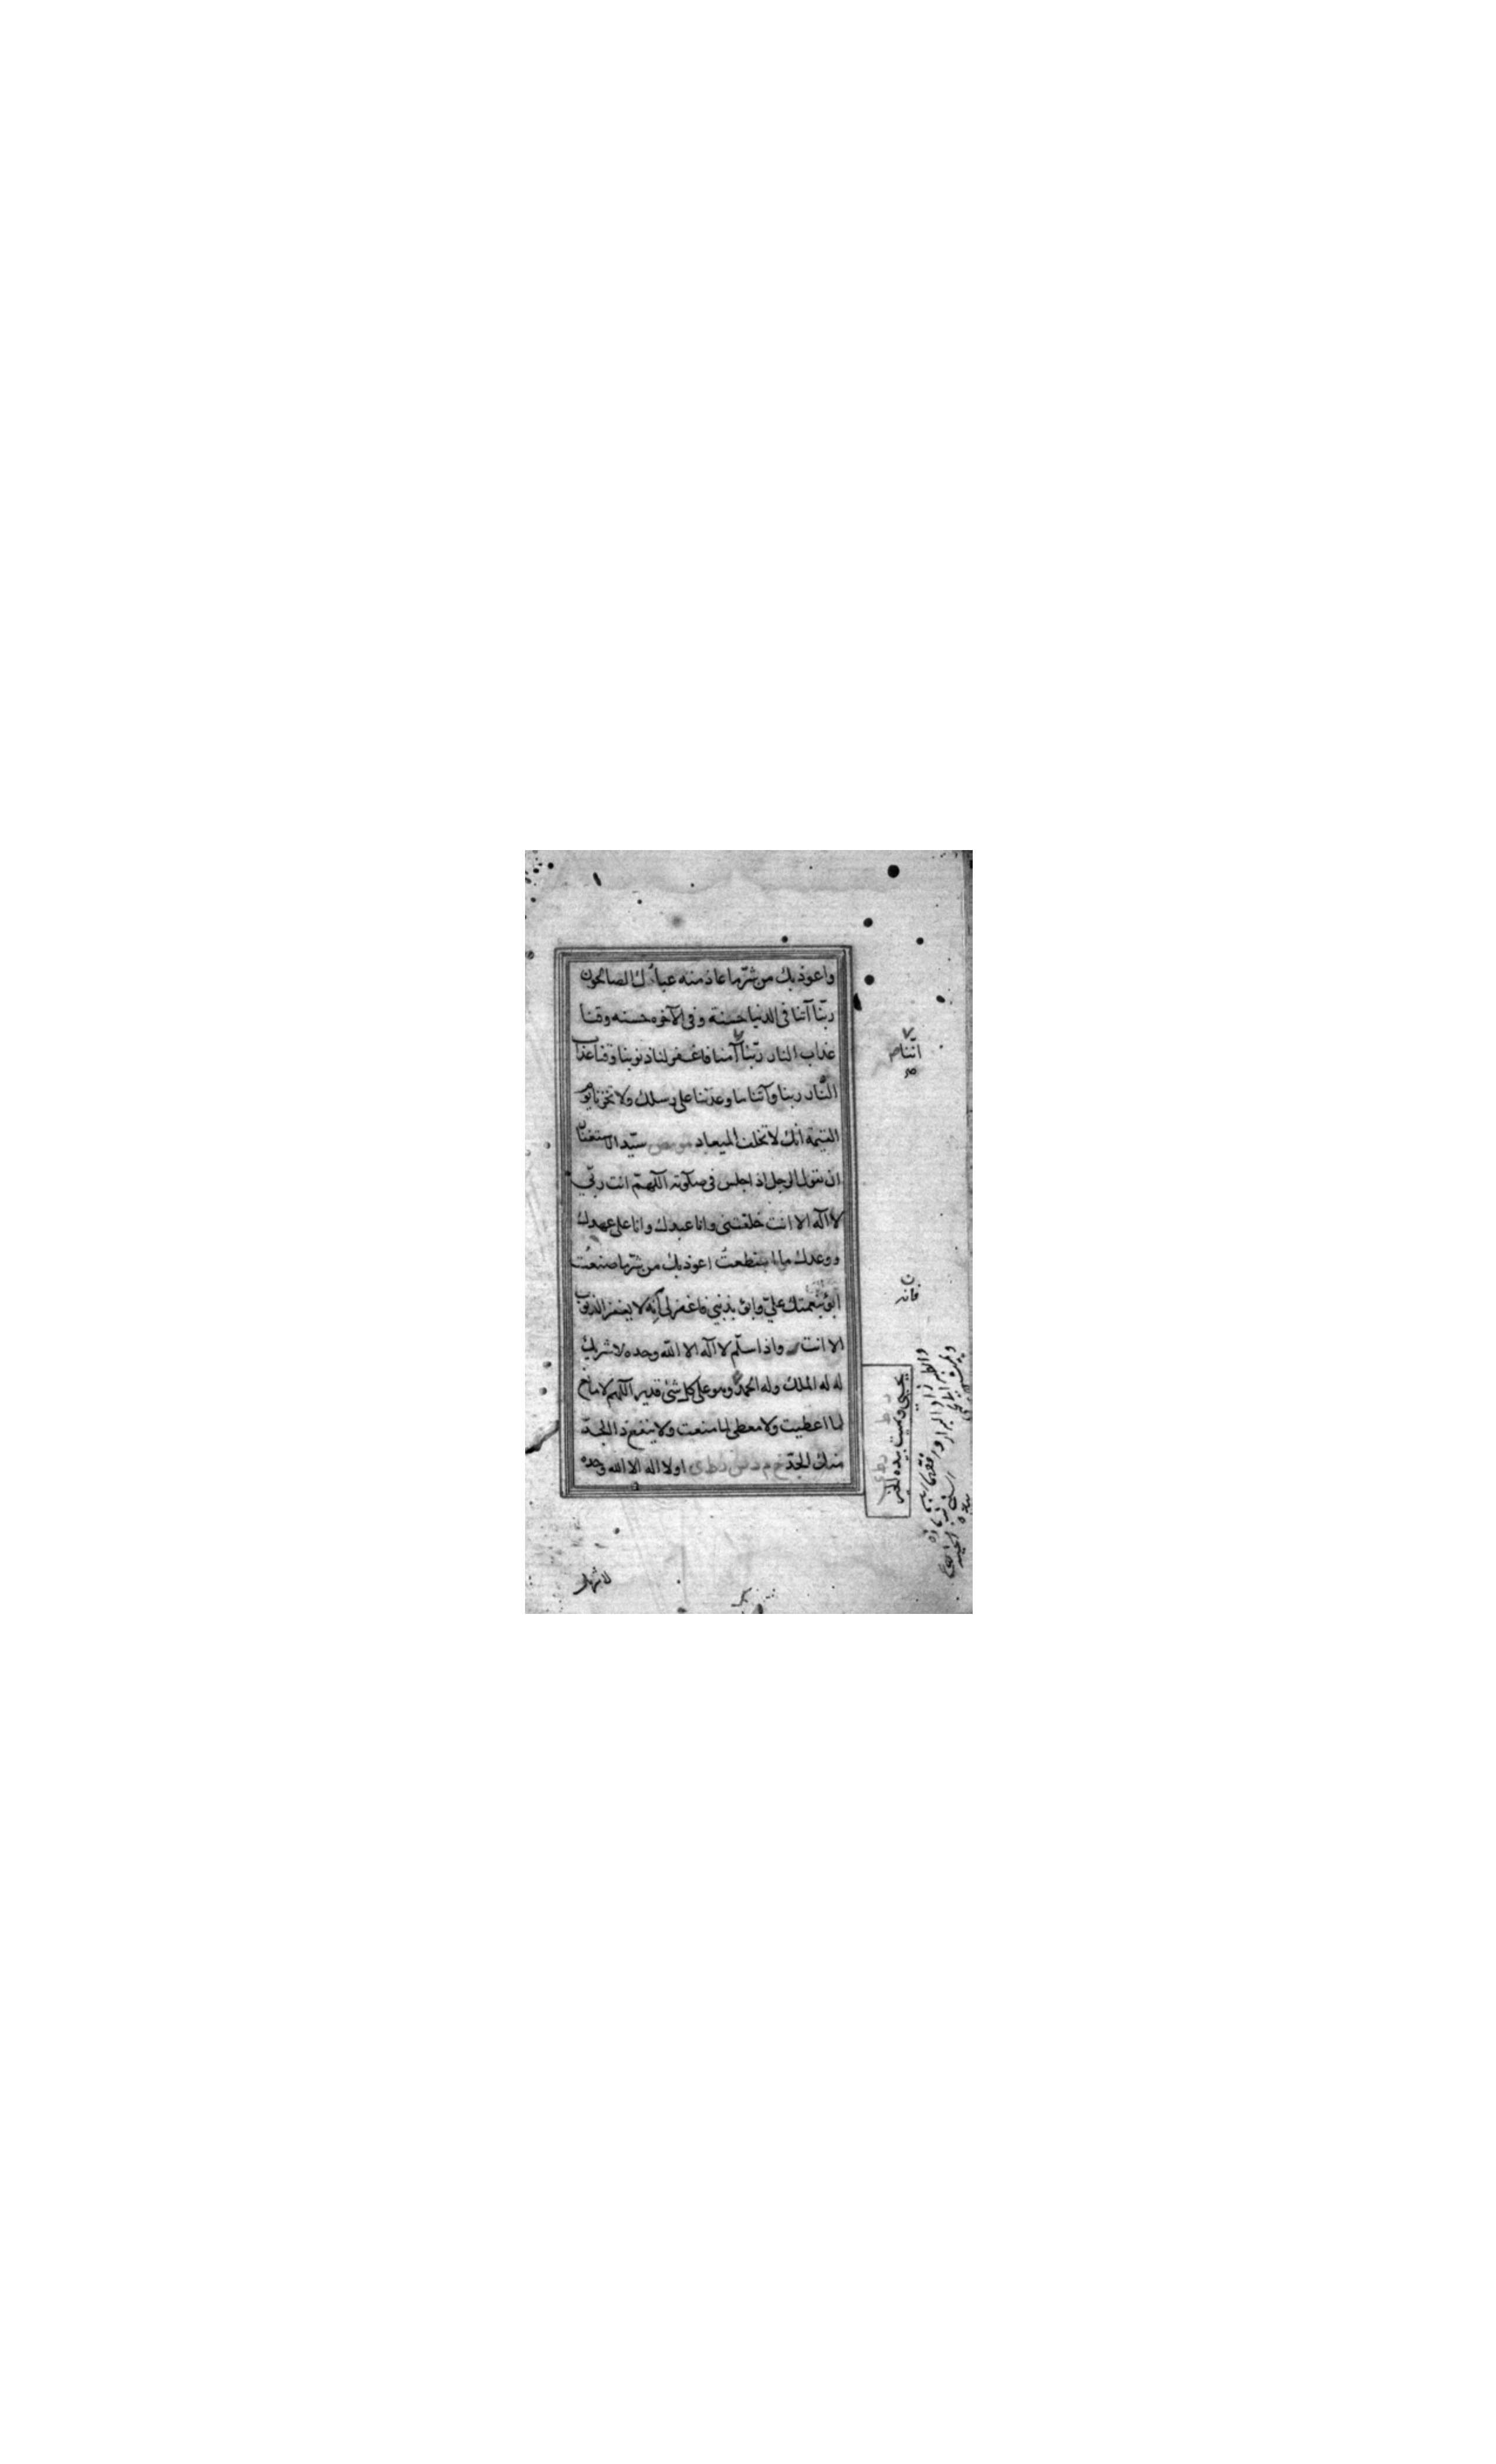 واعوذ بك من شرّ ما عاذ منه عبادك الصالحون
ربّنا آتنا فى الدنيا حسنة وفى الآخره حسنه وقنا
عذاب النار ربّنا آمنا فاغفر لنا ذنوبنا وقنا عذاب
النّار ربنا وآتنا ما وعدتنا على رسلك ولا تخزنا يوم
القيمة انك لا تخلف الميعاد مو مص سيّد الاستغفار
ان يقول الرجل اذا جلس فى صلوته اللهمّ انت ربّي
لا اله الا انت خلقتنى وانا عبدك وانا على عهدك
ووعدك ما استطعت اعوذ بك من شرّ ما صنعت
ابوُ بنعمتك عليّ وابوُ بذنبي فاغفر لى انّه لا يغفر الذنوب
الا انت واذا سلّم لا اله الا الله وحده لا شريك
له له الملك وله الحمد وهو على كل شئ قدير اللهم لا مانع
لما اعطيت ولا معطى لما منعت ولا ينفع ذا الجدّ
منك الجدّ خ م د س ر ط ى او لا اله الا الله وحده
اننا
فانه
يحيى ويميت بيده الخير
لا شريك